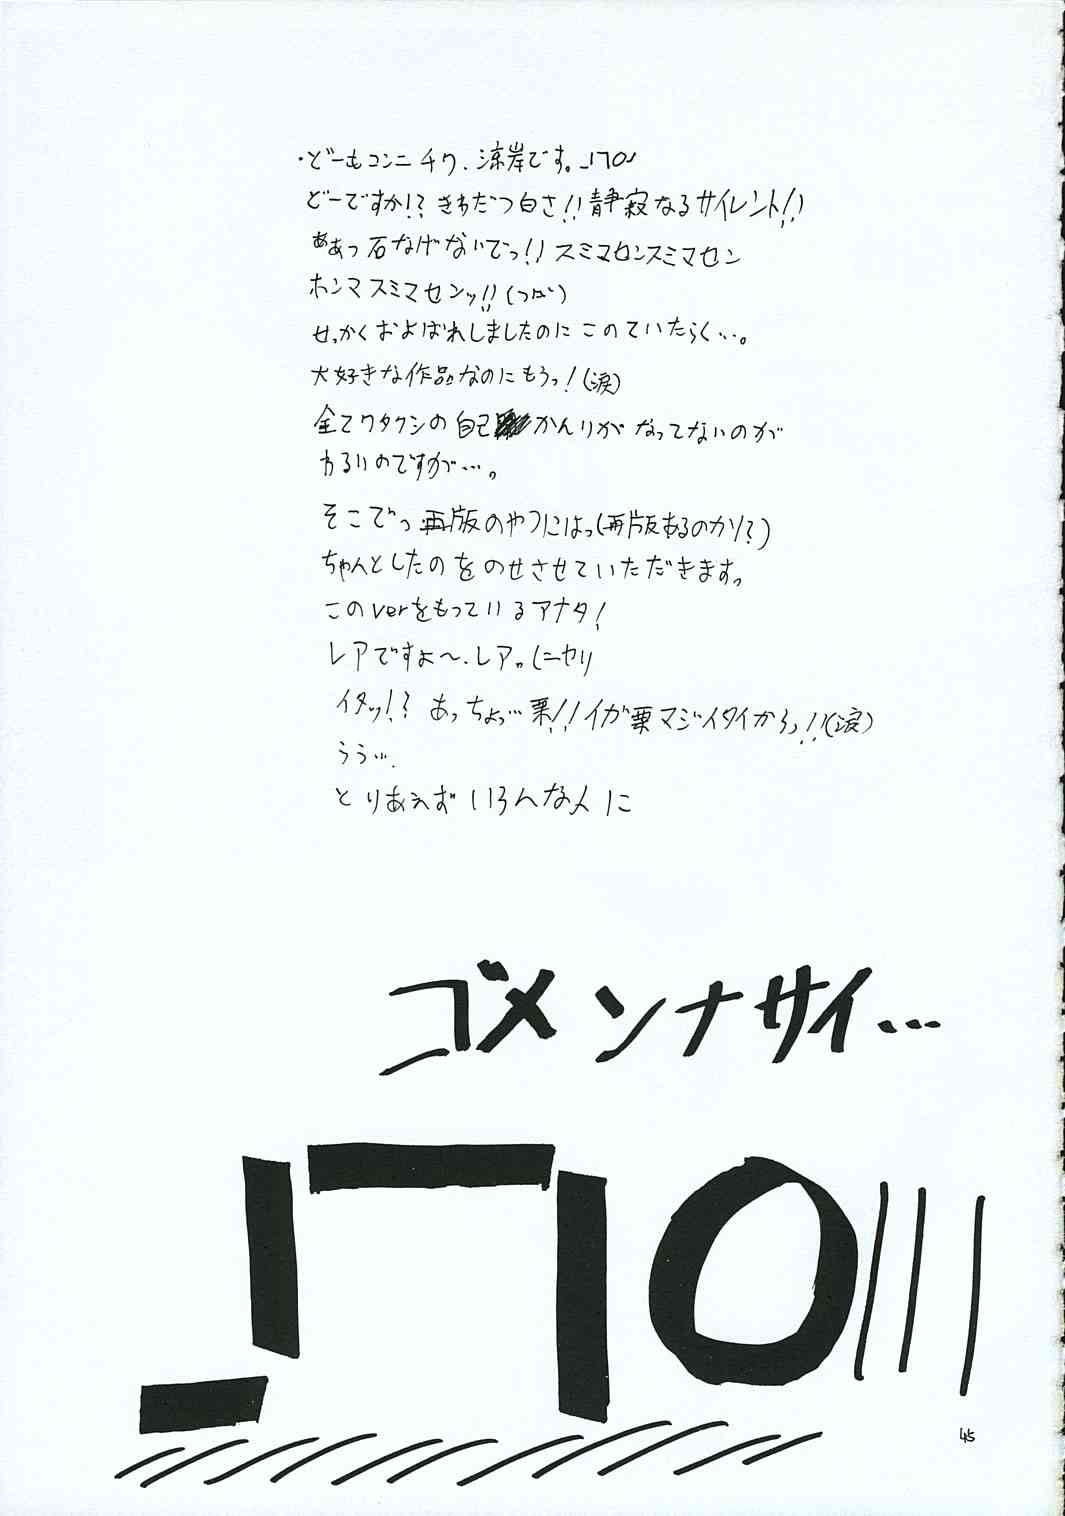 ・どーもコンニチワ、涼岸です。_| ̄|○
どーですか!? きわだつ白さ!! 静寂なるサイレント!!
ああっ石なげないでっ!! スミマセンスミマセン
ホンマスミマセンッ!!(つばい)
せっかくおよばれしましたのにこのていたらく…。
大好きな作品なのにもうっ!(涙)
全てワタクシの自己かんりがなってないのが
わるいのですが…。
そこでっ再版のやつにはっ(再版あるのか!?)
ちゃんとしたのをのせさせていただきます。
このverをもっているアナタ!
レアですよ〜、レア。(ニヤリ
イタッ!? あっちょっ…栗!! イガ栗マジイタイからっ!!(涙)
うぅ…。
とりあえずいろんな人に
ゴメンナサイ…
_| ̄|○|||
45